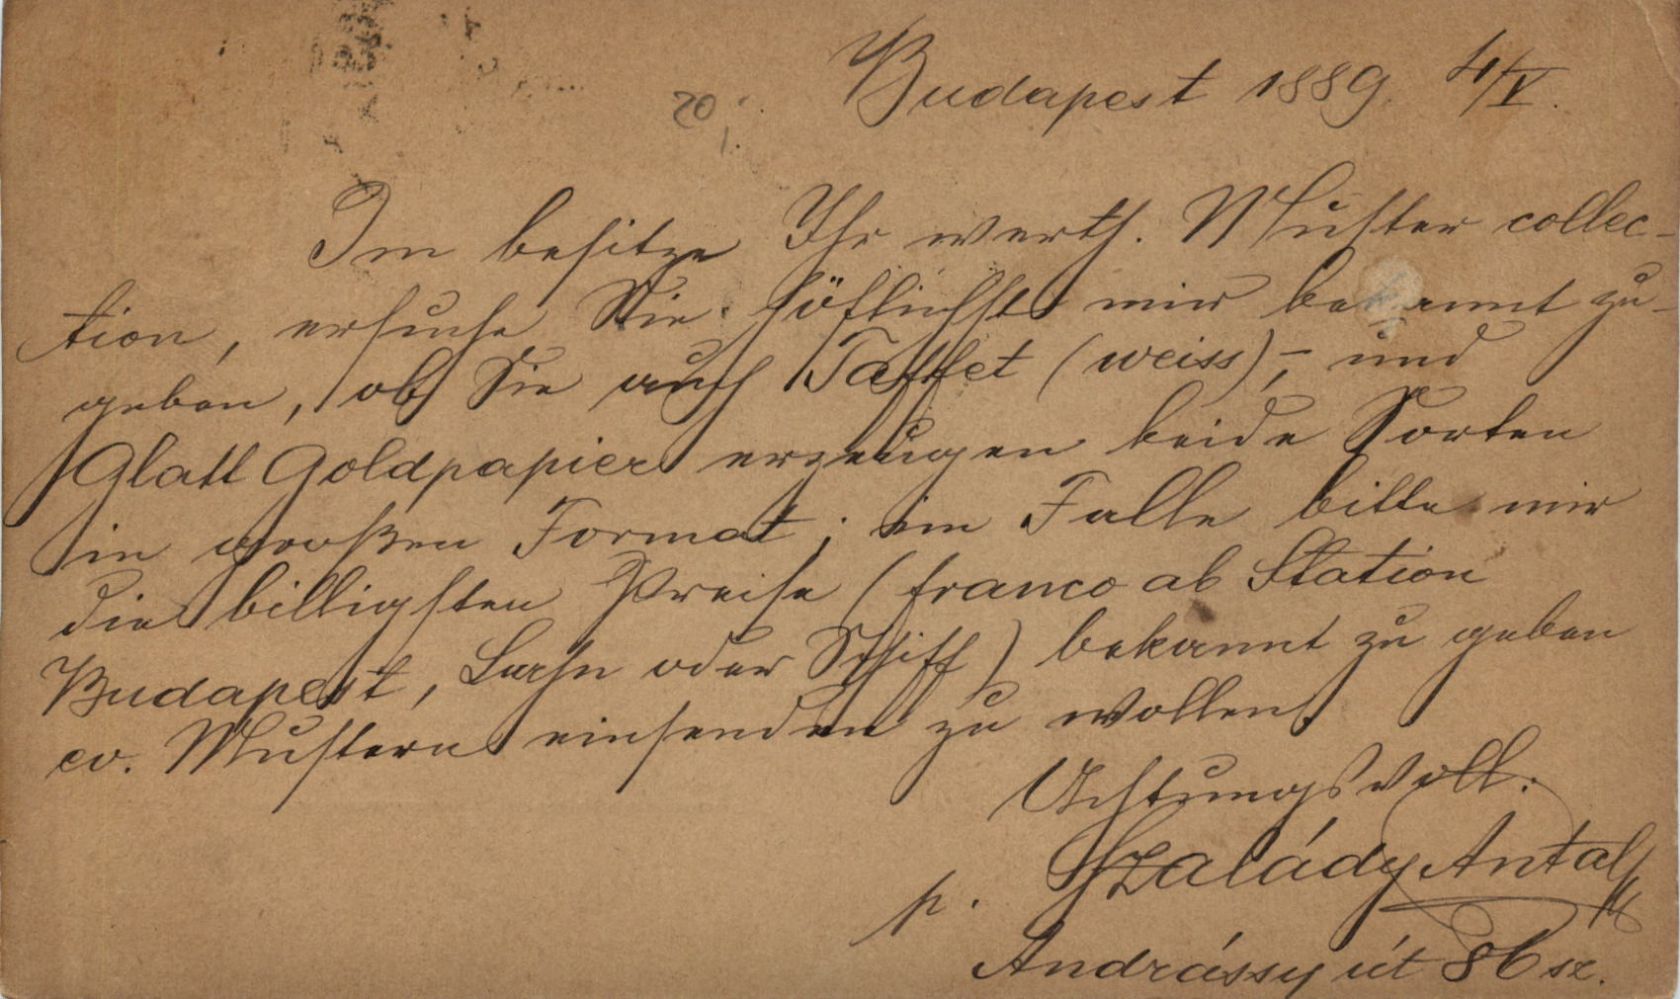 Budapest 1889 4/V.
20
Im besitze Ihr werth. Muster collec-
tion, ersuche Sie höflichst mir bekannt zu-
geben, ob Sie auch Taffet (weiss),- und
Glatt Goldpapier erzeugen beide Sorten
in großen Format; im Falle bitte mir
die billigsten Preise (franco ab Station
Budapest, Bahn oder Schiff) bekannt zu geben
ev. Mustern einsenden zu wollen.
Achtungsvoll:
p. Szalády Antal
Andrássy út 86 sz.